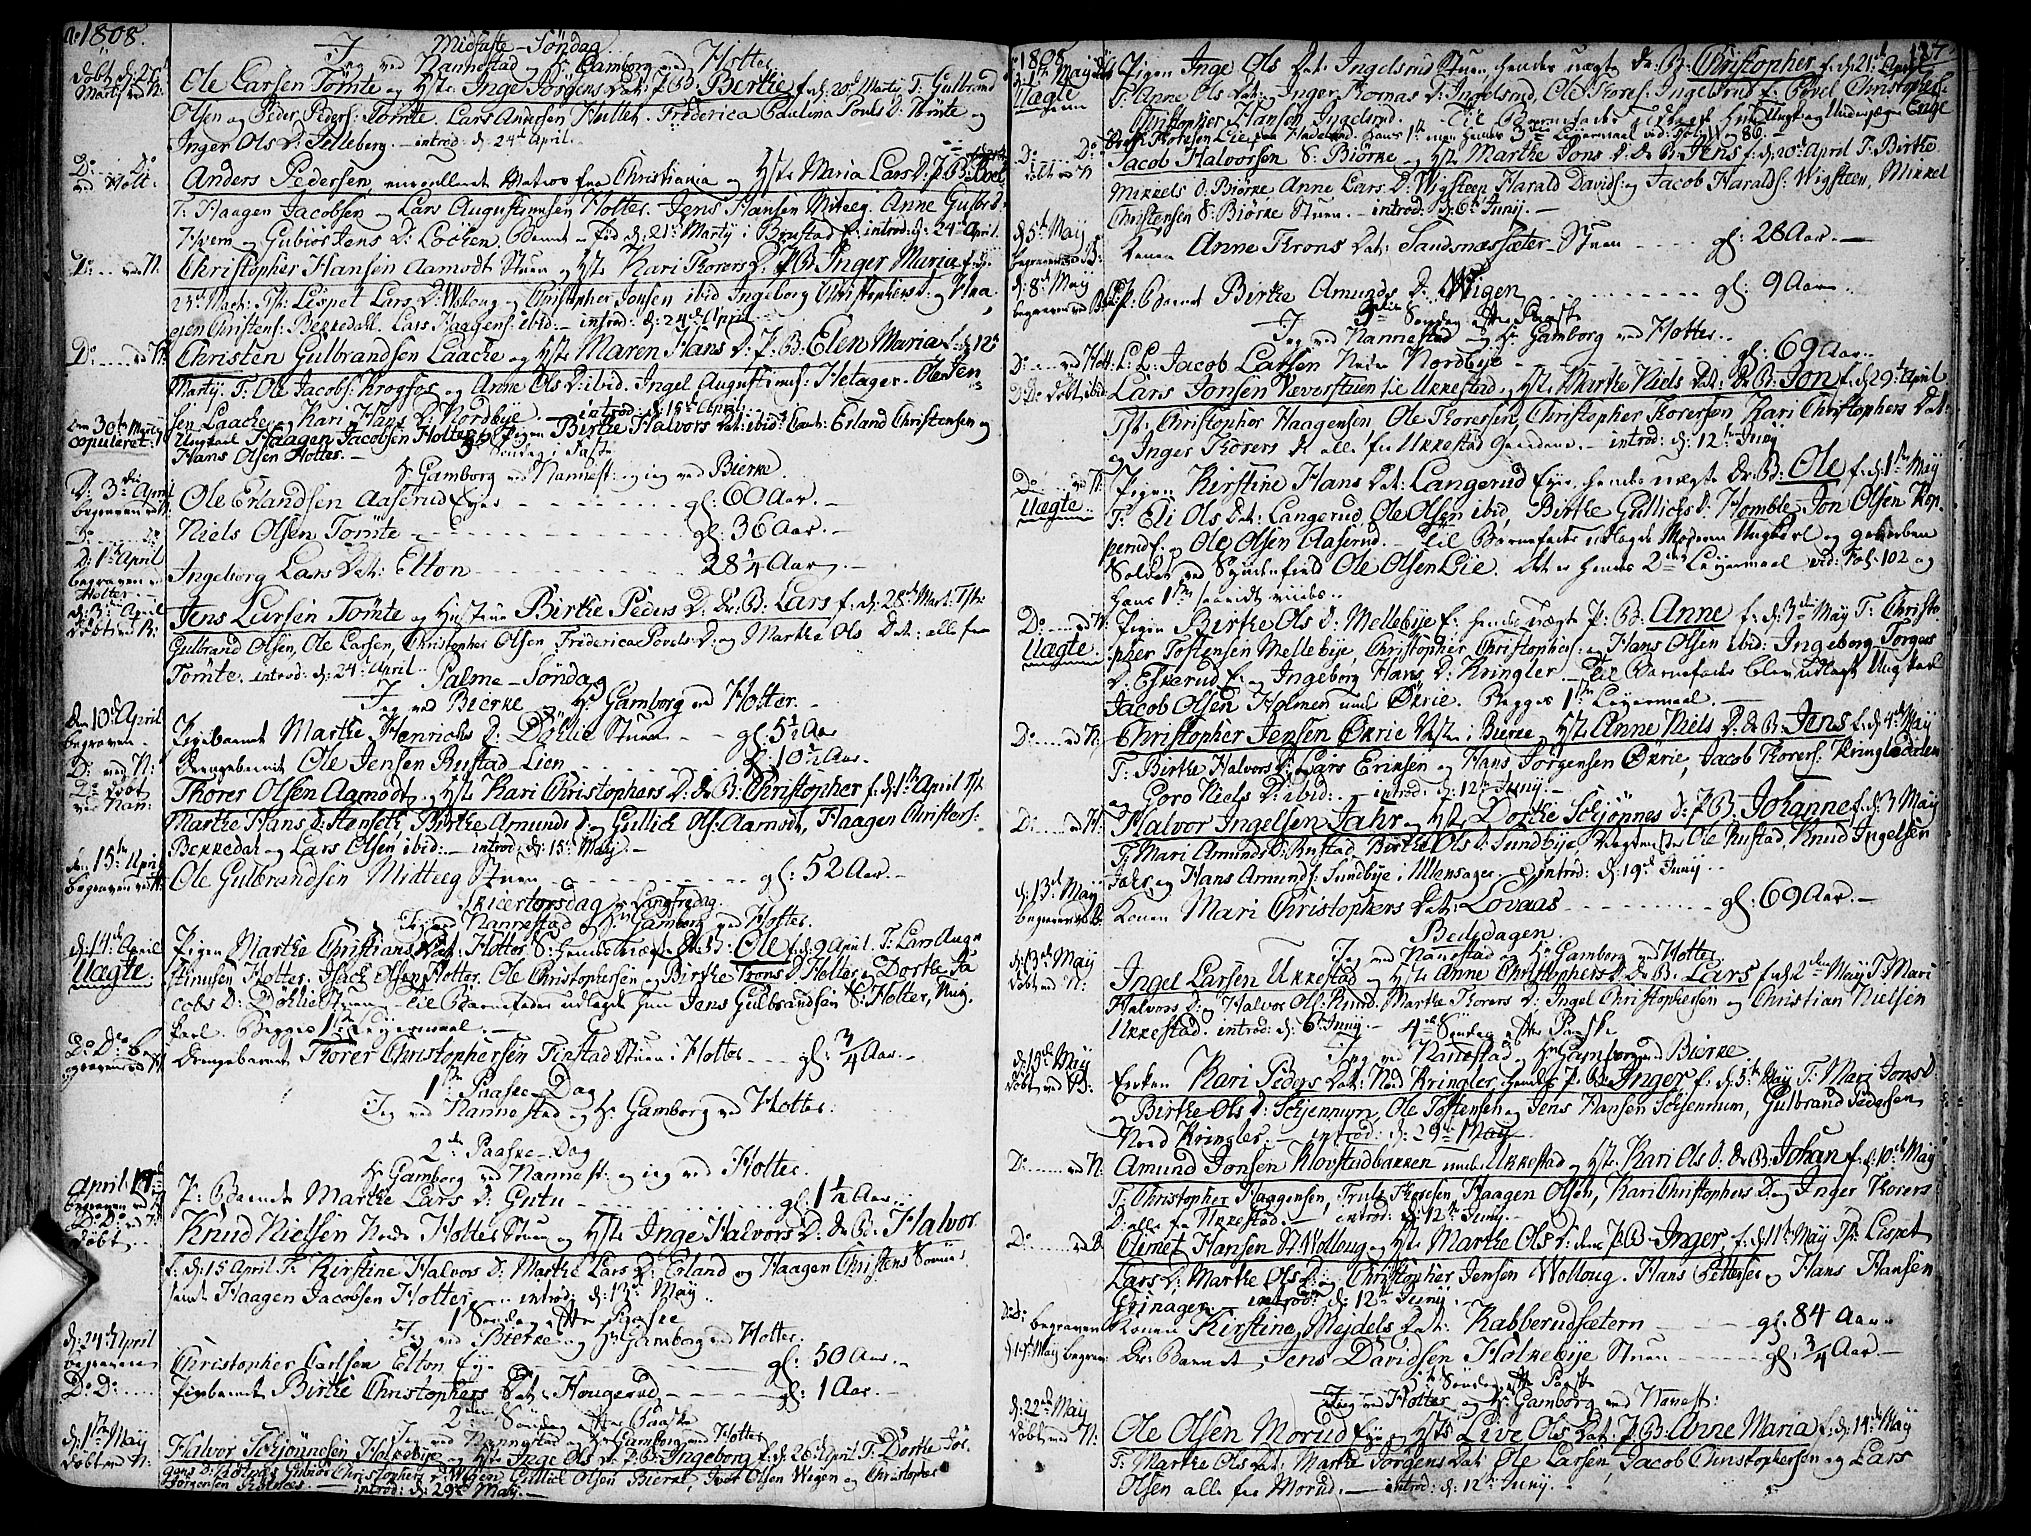 Ao 1808.
Midfaste-Søndag
Jeg ved Nannestad og Hr Gamborg ved Holter.
Ole Larsen Tømte og Hste Inge Jørgens Dat: P: B: Birthe f. d: 20de Marty T: Gulbrand
Olsen og Peder Peders: Tømte. Lars Andersen Holter. Friderica Paulina Povels D: Tømte og
Inger Ols D: Selleberg. - introd: d: 24de April.
Do Do
ved Holt:
Anders Pedersen, enroulleret Matros fra Christiania og Hste Maria Lars D: P: B:
T: Haagen Jacobsen og Lars Augustinusen Holter. Jens Hansen Miteeg. Anne Gulbr:
Hvem og Gubiør Jens D: Løcken. Barnet f. d: 21de Marty i Brustad. introd: d: 24de April.
Do ved N:
Christopher Hansen Aamodt Stuen og Hste Kari Thorers D: P: B: Inger Maria f. d:
23de Mart: T: Lispet Lars D: Wolloug og Christopher Jonsen ibid Ingeborg Christophers D: og
Christens: Bekkedall. Lars Haagens: ibid - introd: d: 24de April
Do ved N:
Christen Gulbrandsen Laache og Hste Maren Hans D: P: B: Elen Maria f. d: 12te
Marty. T: Ole Jacobs: Krogfos og Anne Ols D: ibid. Ingel Augustinus: Hetager. Ole Jen
sen Laache og Kari Hans D: Nordbye introd: d: 15de April.
den 30te Marty
copuleret:
Ungkarl Haagen Jacobsen Holter og Pigen Birthe Halvors Dat: ibid: Caut: Erland Christensen og
Hans Olsen Holter. -
3die Søndag i Faste
Hr Gamborg ved Nannest: og jeg ved Bierke.
D: 3die April
begraven ved N:
Ole Erlandsen Aaserud Eyer gl: 60 Aar. -
Niels Olsen Tømte gl: 36 Aar. -
D: 1ste April
begraven v:
Holter.
Ingeborg Lars Dat: Elton 28 1/4 Aar. -
d: 3die April
Døbt ved B:
Jens Larsen Tømte og Hustrue Birthe Peders D: Dr: B: Lars f. d: 28de Mart: Tst:
Gulbrand Olsen, Ole Larsen, Christopher Olsen Friderica Povels D: og Marthe Ols Dat: alle fra
Tømte. introd: d: 24de April.
Palme-Søndag
Jeg ved Bierke og Hr Gamborg ved Holter.
den 10de April
begraven
Pigebarnet Marthe Henrichs D: Døhlie Stuen gl: 5 1/2 Aar
Do ved N:
Drengebarnet Ole Jensen Rustad Lien gl: 10 1/2 Aar.
Do døbt
ved Nan:
Thorer Olsen Aamodt og Hste Kari Christophers D: Dr: B: Christopher f. d: 1ste April Tst:
Marthe Hans D: Hanseli, Birthe Amunds D: og Gullich Ols: Aamodt, Haagen Christens:
Bekkedal og Lars Olsen ibid: - introd: d: 15de May. -
den 15de April
begraven ved N:
Ole Gulbrandsen Midteeg Stuen gl: 52 Aar. -
Skiertorsdag og Langfredag.
Jeg ved Nannestad og Hr Gamborg ved Holter.
d: 14de April
Uægte.
Pigen Marthe Christians Dat: Holter S: hendes uægte Dr: B: Ole f. d: 9 April. T: Lars Augu
stinusen Holter. Isach Olsen Holter. Ole Christophersen og Birthe Trons D: Holter og Dorthe Ja
cobs D: Døhlie Stuen. Til Barnefader udlagde hun Jens Gulbrandsen S: Holter, Ung
karl. Begges 1ste Leyermaal. -
Do Do be-
graven ved N:
Drengebarnet Thorer Christophersen Tinstad Stuen i Holter gl: 3/4 Aar. -
1ste Paaske-Dag
Jeg ved Nannestad og Hr Gamborg ved Holter.
2den Paaske-Dag
Hr Gamborg ved Nannest: og jeg ved Holter.
April 17de
begraven ved N:
P: Barnet Marthe Lars D: Gutu gl: 1 1/2 Aar
Do Do ved H:
Døbt
Knud Nielsen Nordre Holter Stuen og Hste Inge Halvors D: Dr: B: Halvor
f. d: 15 April T: Kirstine Halvors D: Marthe Lars D: Erland og Haagen Christens
samt Haagen Jacobsen Holter. introd: d: 1ste May
1 Søndag efter Paaske
Jeg ved Bierke og Hr Gamborg ved Holter.
d: 24de April
begraven
Christopher Carlsen Elton Ey gl: 50 Aar. -
Do Do
Pigebarnet Birthe Christophers Dat: Hougerud gl: 1 Aar. -
2den Søndag efter Paaske
Jeg ved Nannestad og Hr Gamborg ved Holter
d: 1ste May
Døbt ved N:
Halvor Schjønnesen Holkebye og Hste Inge Ols D: P: B: Ingeborg f. d: 26de April T: Dorthe Jør
gens D: Holmes Gubiør Christophers D: Wigen Gullich Olsen Bierke, Iver Olsen Wigen og Christopher
Jørgensen Holmes. introd: d: 29de May. -
1808
137
d: 1ste May
Uægte
Pigen Inge Ols Dat: Ingelsrud Stuen hendes uægte Dr: B: Christopher f. d: 21de April
T: Anne Ols Dat: Inger Thomas D: Ingelsrud, Ole Thores: Ingelsrud og Povel Christophers:
Christopher Hansen Ingelsrud.
Thoresen Lie fra Hadeland. Hans 1ste men hendes 3die Leyermaal vid: Fol: 11 og 86. -
Do Do
Døbt ved N
Jacob Halvorsen S: Biørke og Hste Marthe Jons D: Dr: B: Jens f. d: 20de April T: Birthe
Mikkels D: Biørke Anne Lars D: Wigsteen Harald Davids: og Jacob Haralds: Wigsteen, Mikkel
Christensen S: Biørke Stuen. - introd: d: 6te Juny. -
d: 5te May
begraven
Konen Anne Throns Dat: Sandsnessæter-Stuen gl: 28 Aar. -
d: 8de May
begraven ved B:
P: Barnet Birthe Amunds D: Wigen gl: 9 Aar.
3die Søndag efter Paaske
Jeg ved Nannestad og Hr Gamborg ved Holter.
Do ved Holt:
L: L: Jacob Larsen Nedre Nordbye gl: 69 Aar.
Do Do Døbt ibid
Lars Jonsen Væverstuen til Ukkestad og Hste Marthe Niels Dat: Dr: B: Jon f. d: 29de April
Tst: Christopher Haagensen, Ole Thoresen, Christopher Thorersen Kari Christophers Dat:
og Inger Thorers D: alle fra Ukkestad Gaardene. - introd: d: 12te Juny
Do ved N:
Uægte.
Pigen Kirstine Hans Dat: Langerud Eyer hendes uægte Dr: B: Ole f. d: 1ste May
T: Eli Ols Dat: Langerud, Ole Olsen ibid, Birthe Gullichs D: Homble, Jon Olsen Kop
perud og Ole Olsen Aaserud. - Til Barnefader udlagde Moderen Ungkarl og geworben
Soldat ved Syndenfield Ole Olsen Lie. Det er hendes 2det Leyermaal vid: Fol: 102 og
hans 1ste saavidt vides.
Do ved N:
Uægte.
Pigen Birthe Ols D: Mellebye hendes uægte P: B: Anne f. d: 3die May T: Christo
pher Tostensen Mellebye, Christopher Christophers: og Hans Olsen ibid: Ingeborg Torgers
D: Eskerud E: og Ingeborg Hans D: Kringler. - Til Barnefader blev udlagt Ungkarl
Jacob Olsen Holmen under Økrie. Begges 1ste Leyermaal. -
Do ved N:
Christopher Jensen Økrie i Bierke og Hste Anne Niels D: Dr: B: Jens f. d: 4de May
T: Birthe Halvors D: Lars Erichsen og Hans Jørgensen Økrie, Jacob Thorers: Kringlerdalen
og Goro Niels D: ibid: - introd: d: 12te Juny.
Do ved N:
Halvor Ingelsen Jahr og Hste Dorthe Schjønnes D: P: B: Johanne f. d: 3 May
T: Mari Amunds D: Rustad, Birthe Ols D: Sundbye, Ole Rustad, Knud Ingelsen
Jahr og Hans Amunds: Sundbye i Ullensager. introd: d: 19de Juny.
d: 13de May
begraven ved B:
Konen Mari Christophers Dat: Lovaas gl: 69 Aar. -
Bededagen.
Jeg ved Nannestad og Hr Gamborg ved Holter.
d: 13de May
Døbt ved N:
Ingel Larsen Ukkestad og Hste Anne Christophers D: Dr: B: Lars f. d: 2den May T: Mari
Halvors D: og Halvor Ols: Rund. Marthe Thorers D: Ingel Christophersen og Christian Nielsen
Ukkestad. introd: d: 6te Juny. -
4de Søndag efter Paaske
Jeg ved Nannestad og Hr Gamborg ved Bierke.
d: 15de May
Døbt ved B:
Enken Kari Peders Dat: Nord Kringler hendes P: B: Inger f. d: 5te May T: Mari Jons D:
og Birthe Ols D: Schjennum, Ole Tostensen og Jens Hansen Schjennum, Gulbrand Pedersen
Nord Kringler. - introd: d: 29de May
Do ved N:
Amund Jonsen Klovstadbakken under Ukkestad og Hste Kari Ols D: Dr: B: Johan f. d: 10de May
T: Christopher Haagensen, Truls Thoresen, Haagen Olsen, Kari Christophers D: og Inger Thorers
D: alle fra Ukkestad. introd: d: 12te Juny. -
Do ved B:
Clemet Hansen S: Wolloug og Hste Marthe Ols D: deres P: B: Inger f. d: 11te May Tst: Lispet
Lars D: Marthe Ols D: og Christopher Jensen Wolloug. Hans Pettersen og Hans Hansen
Grinager. introd: d: 12te Juny.
Do Do begraven
Konen Kirstine Mejdels Dat: Kabberudsætern gl: 84 Aar
d: 17de May begrav:
Dr: Barnet Jens Davidsen Holkebye Stuen gl: 3/4 Aar. -
5te Søndag efter Paaske
Jeg ved Holter og Hr Gamborg ved Nannest:
d: 22de May
Døbt ved N:
Ole Olsen Morud Ey og Hste Live Ols Dat: P: B: Anne Maria f. d: 14de May
T: Marthe Ols Dat: Marthe Jørgens Dat: Ole Larsen, Jacob Christophersen og Lars
Olsen alle fra Morud. - introd: d: 12te Juny.